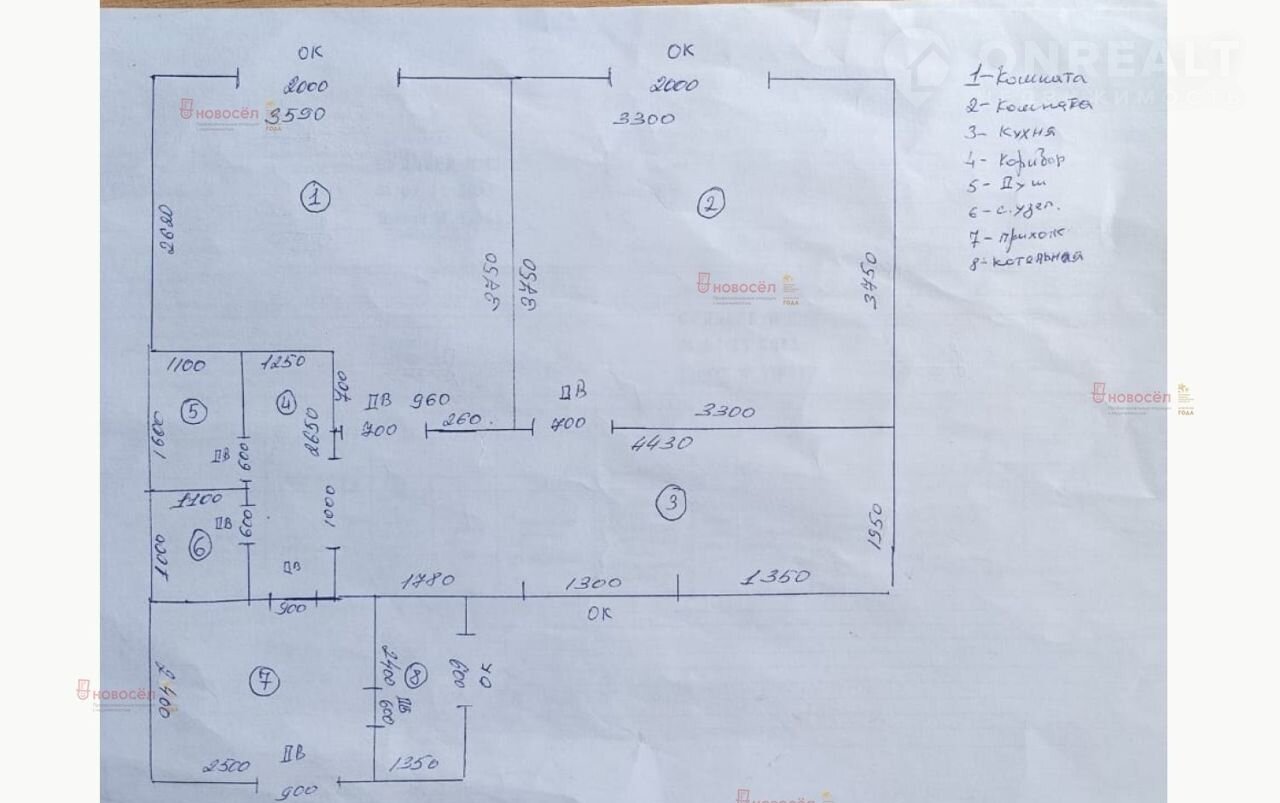 ОК
ОК
2000
2000
3590
3300
1-Комната
2-Комната
3- Кухня
4- Коридор
5- Душ
6-с.узел.
7-прихож
8-котельная
ONREALT
НЕДВИЖИМОСТЬ
новосёл
ГОДА
1
2
2620
3750
3750
3750
новосёл
ГОДА
1100
1250
700
ДВ
960
ДВ
5
4
2650
700
260.
700
3300
4430
новосёл
ГОДА
1600
ДВ
600
3
1100
ДВ
600
1000
1950
6
1000
ДВ
900
1780
1300
1350
ОК
7
2400
8
600
ОК
2400
ДВ
600
новосёл
ДВ
2500
1350
900
новосёл